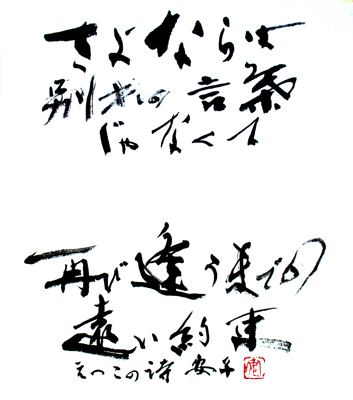 さよならは
別れの言葉
じゃなくて
再び逢うまでの
遠い約束
えつこの詩